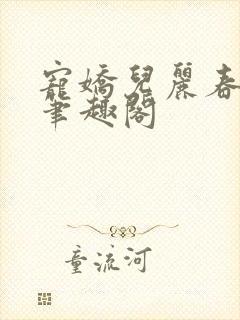 寵嬌兒麗春
筆趣閣
童流河